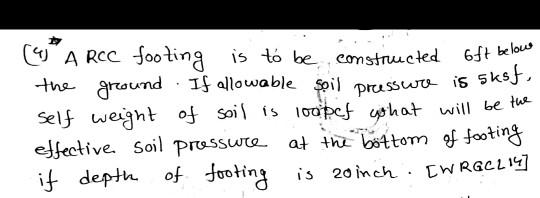 (4)* A RCC footing is to be constructed 6ft below
the ground. If allowable soil pressure is 5ksf,
self weight of soil is 100pcf what will be the
effective soil pressure at the bottom of footing
if depth of footing is 20inch. [WRGCL14]